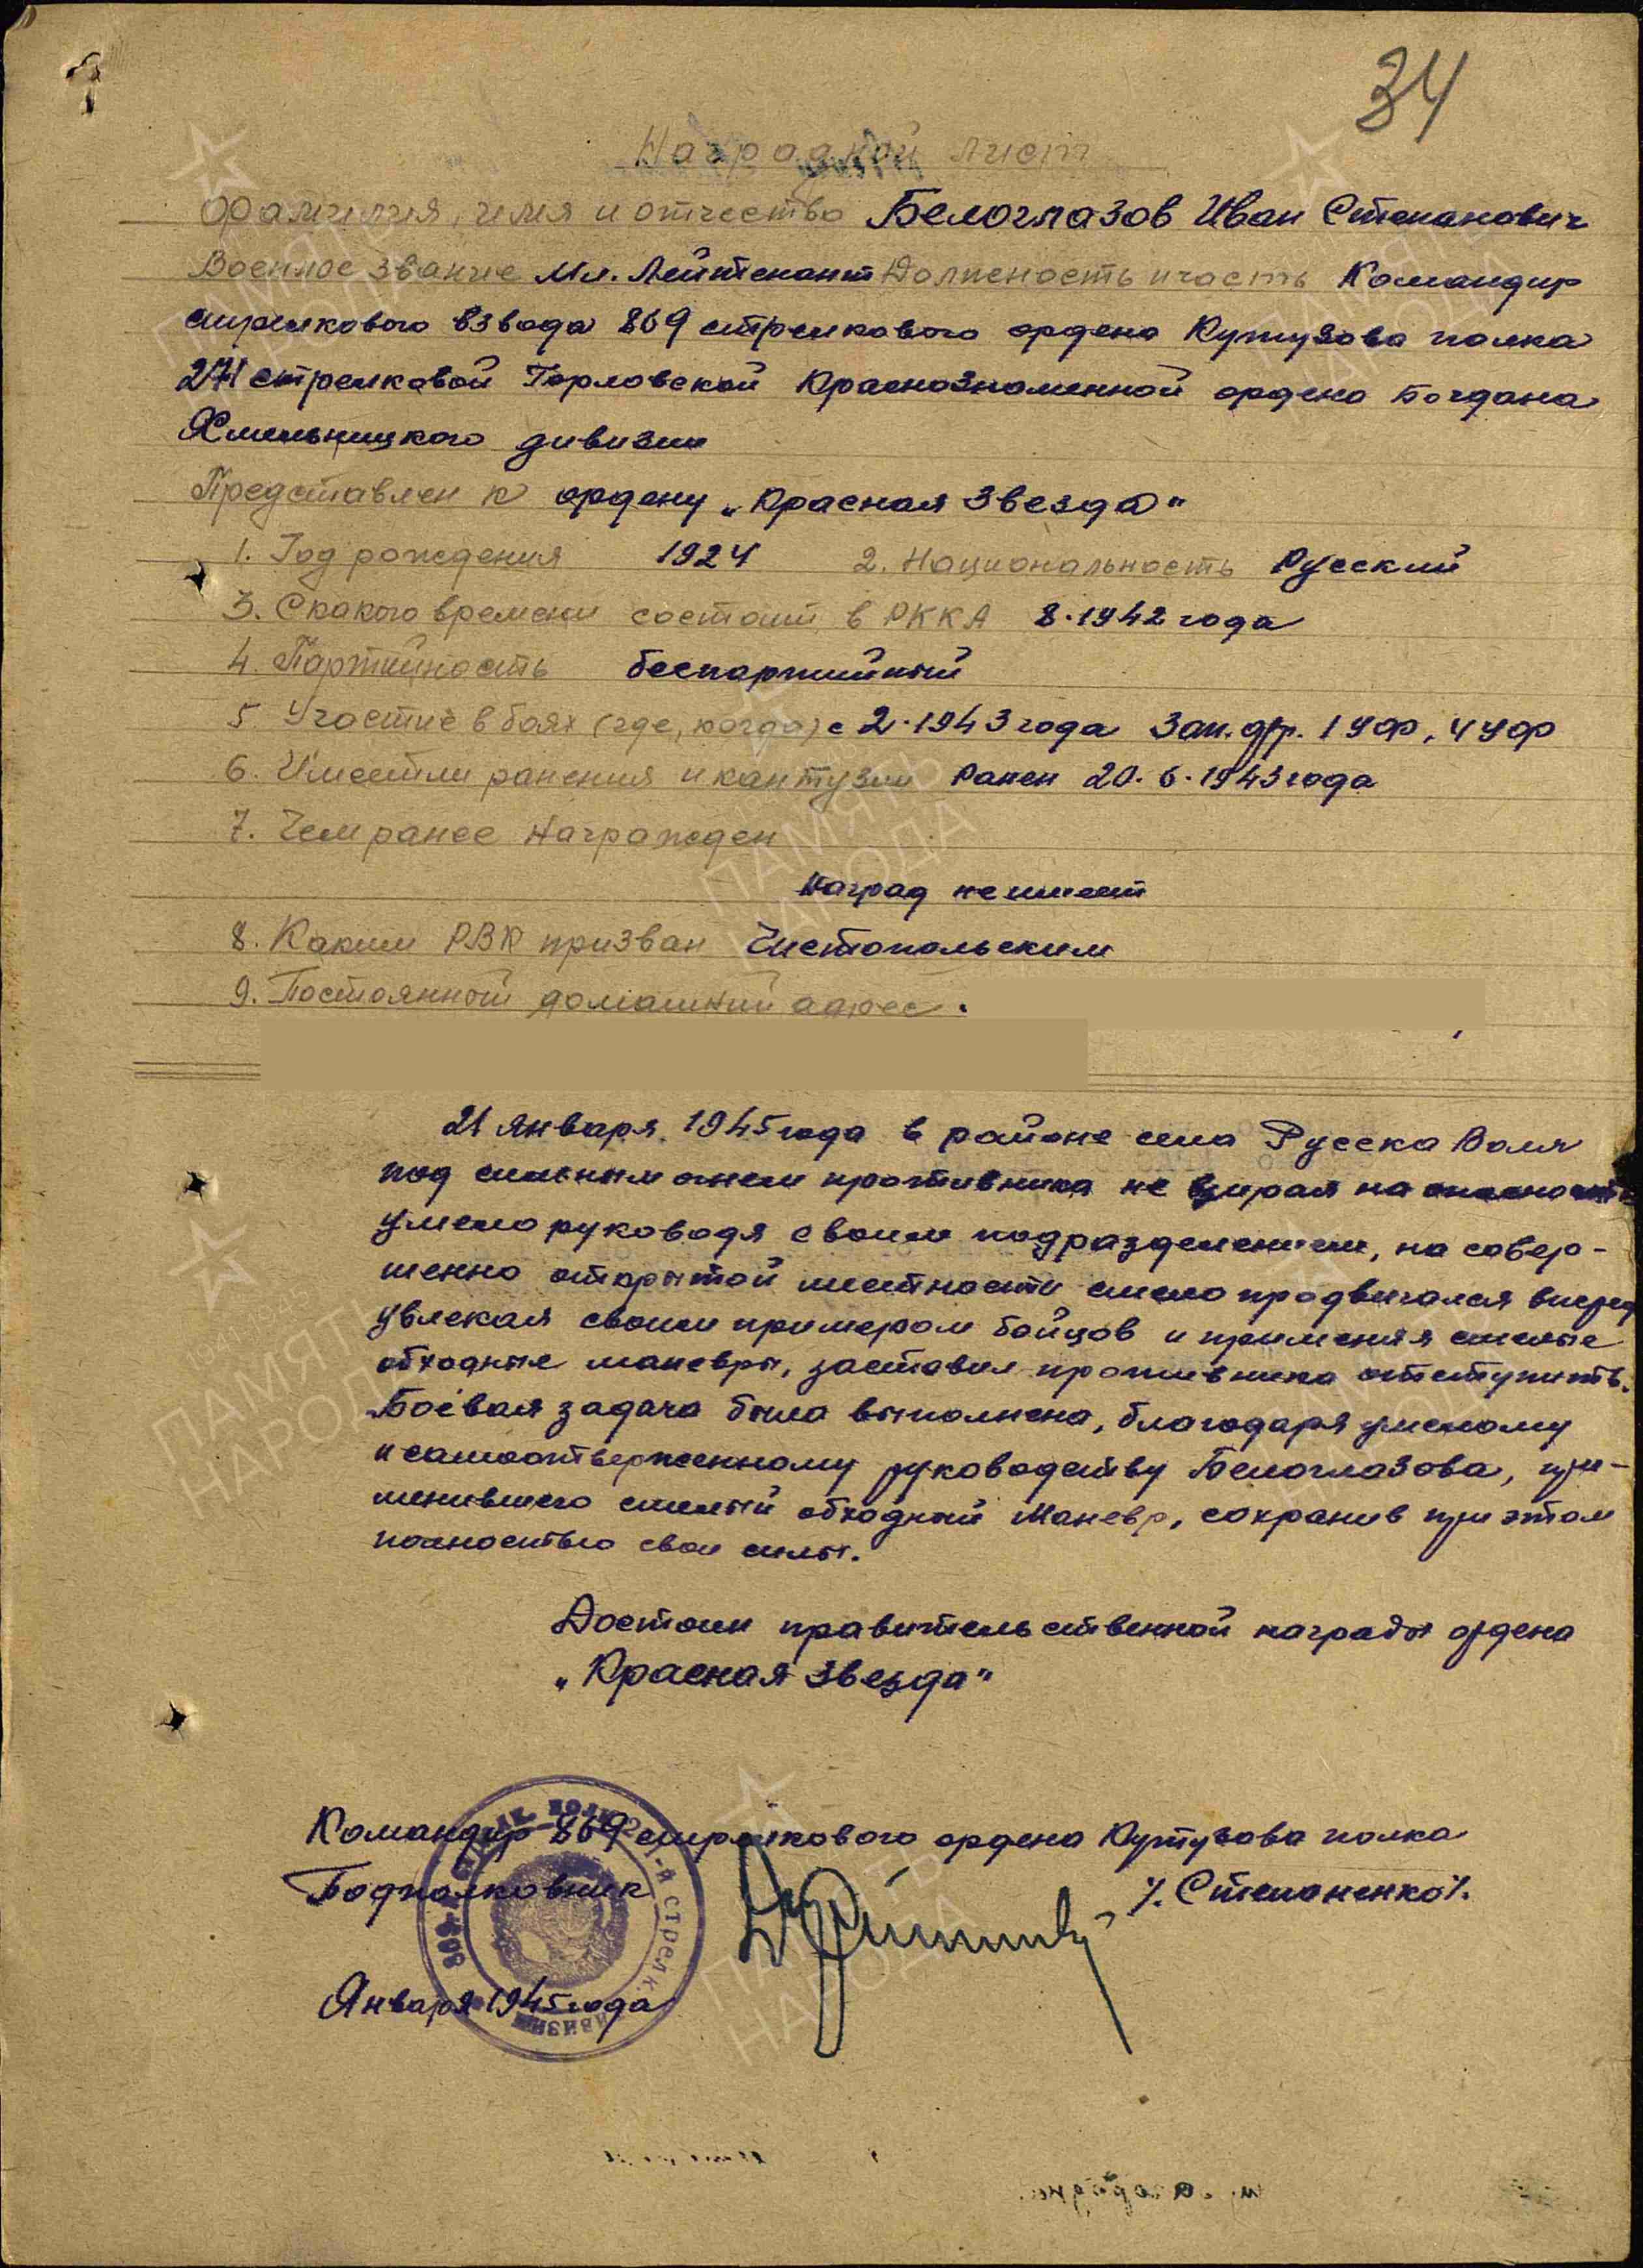 34
Наградной лист
Фамилия, имя и отчество Белоглазов Иван Степанович
Военное звание Мл. Лейтенант Должность и часть Командир
стрелкового взвода 869 стрелкового ордена Кутузова полка
271 стрелковой Горловской Краснознаменной ордена Богдана
Хмельницкого дивизии
Представлен к ордену „Красная Звезда"
1. Год рождения 1924 2. Национальность Русский
3. С какого времени состоит в РККА 8.1942 года
4. Партийность беспартийный
5 Участие в боях (где, когда) с 2.1943 года Зап. фр. 1 УФ, 4 УФ
6. Имеет ли ранения и кантузии Ранен 20.6.1943 года
7. Чем ранее награжден
Наград не имеет
8. Каким РВК призван Чистопольским
9. Постоянный домашний адрес.
21 января 1945 года в районе села Русска Воля
под сильным огнем противника не взирая на опасность
умело руководя своим подразделением, на совер-
шенно открытой местности смело продвигался вперед
увлекая своим примером бойцов и применяя смелые
обходные маневры, заставил противника отступить.
Боевая задача была выполнена, благодаря умелому
и самоотверженному руководству Белоглазова, при-
менившего смелый обходный маневр, сохранив при этом
полностью свои силы.
Достоин правительственной награды ордена
„Красная Звезда"
Командир 869 стрелкового ордена Кутузова полка
Подполковник /. Степаненко /.
Января 1945 года
ПАМЯТЬ НАРОДА